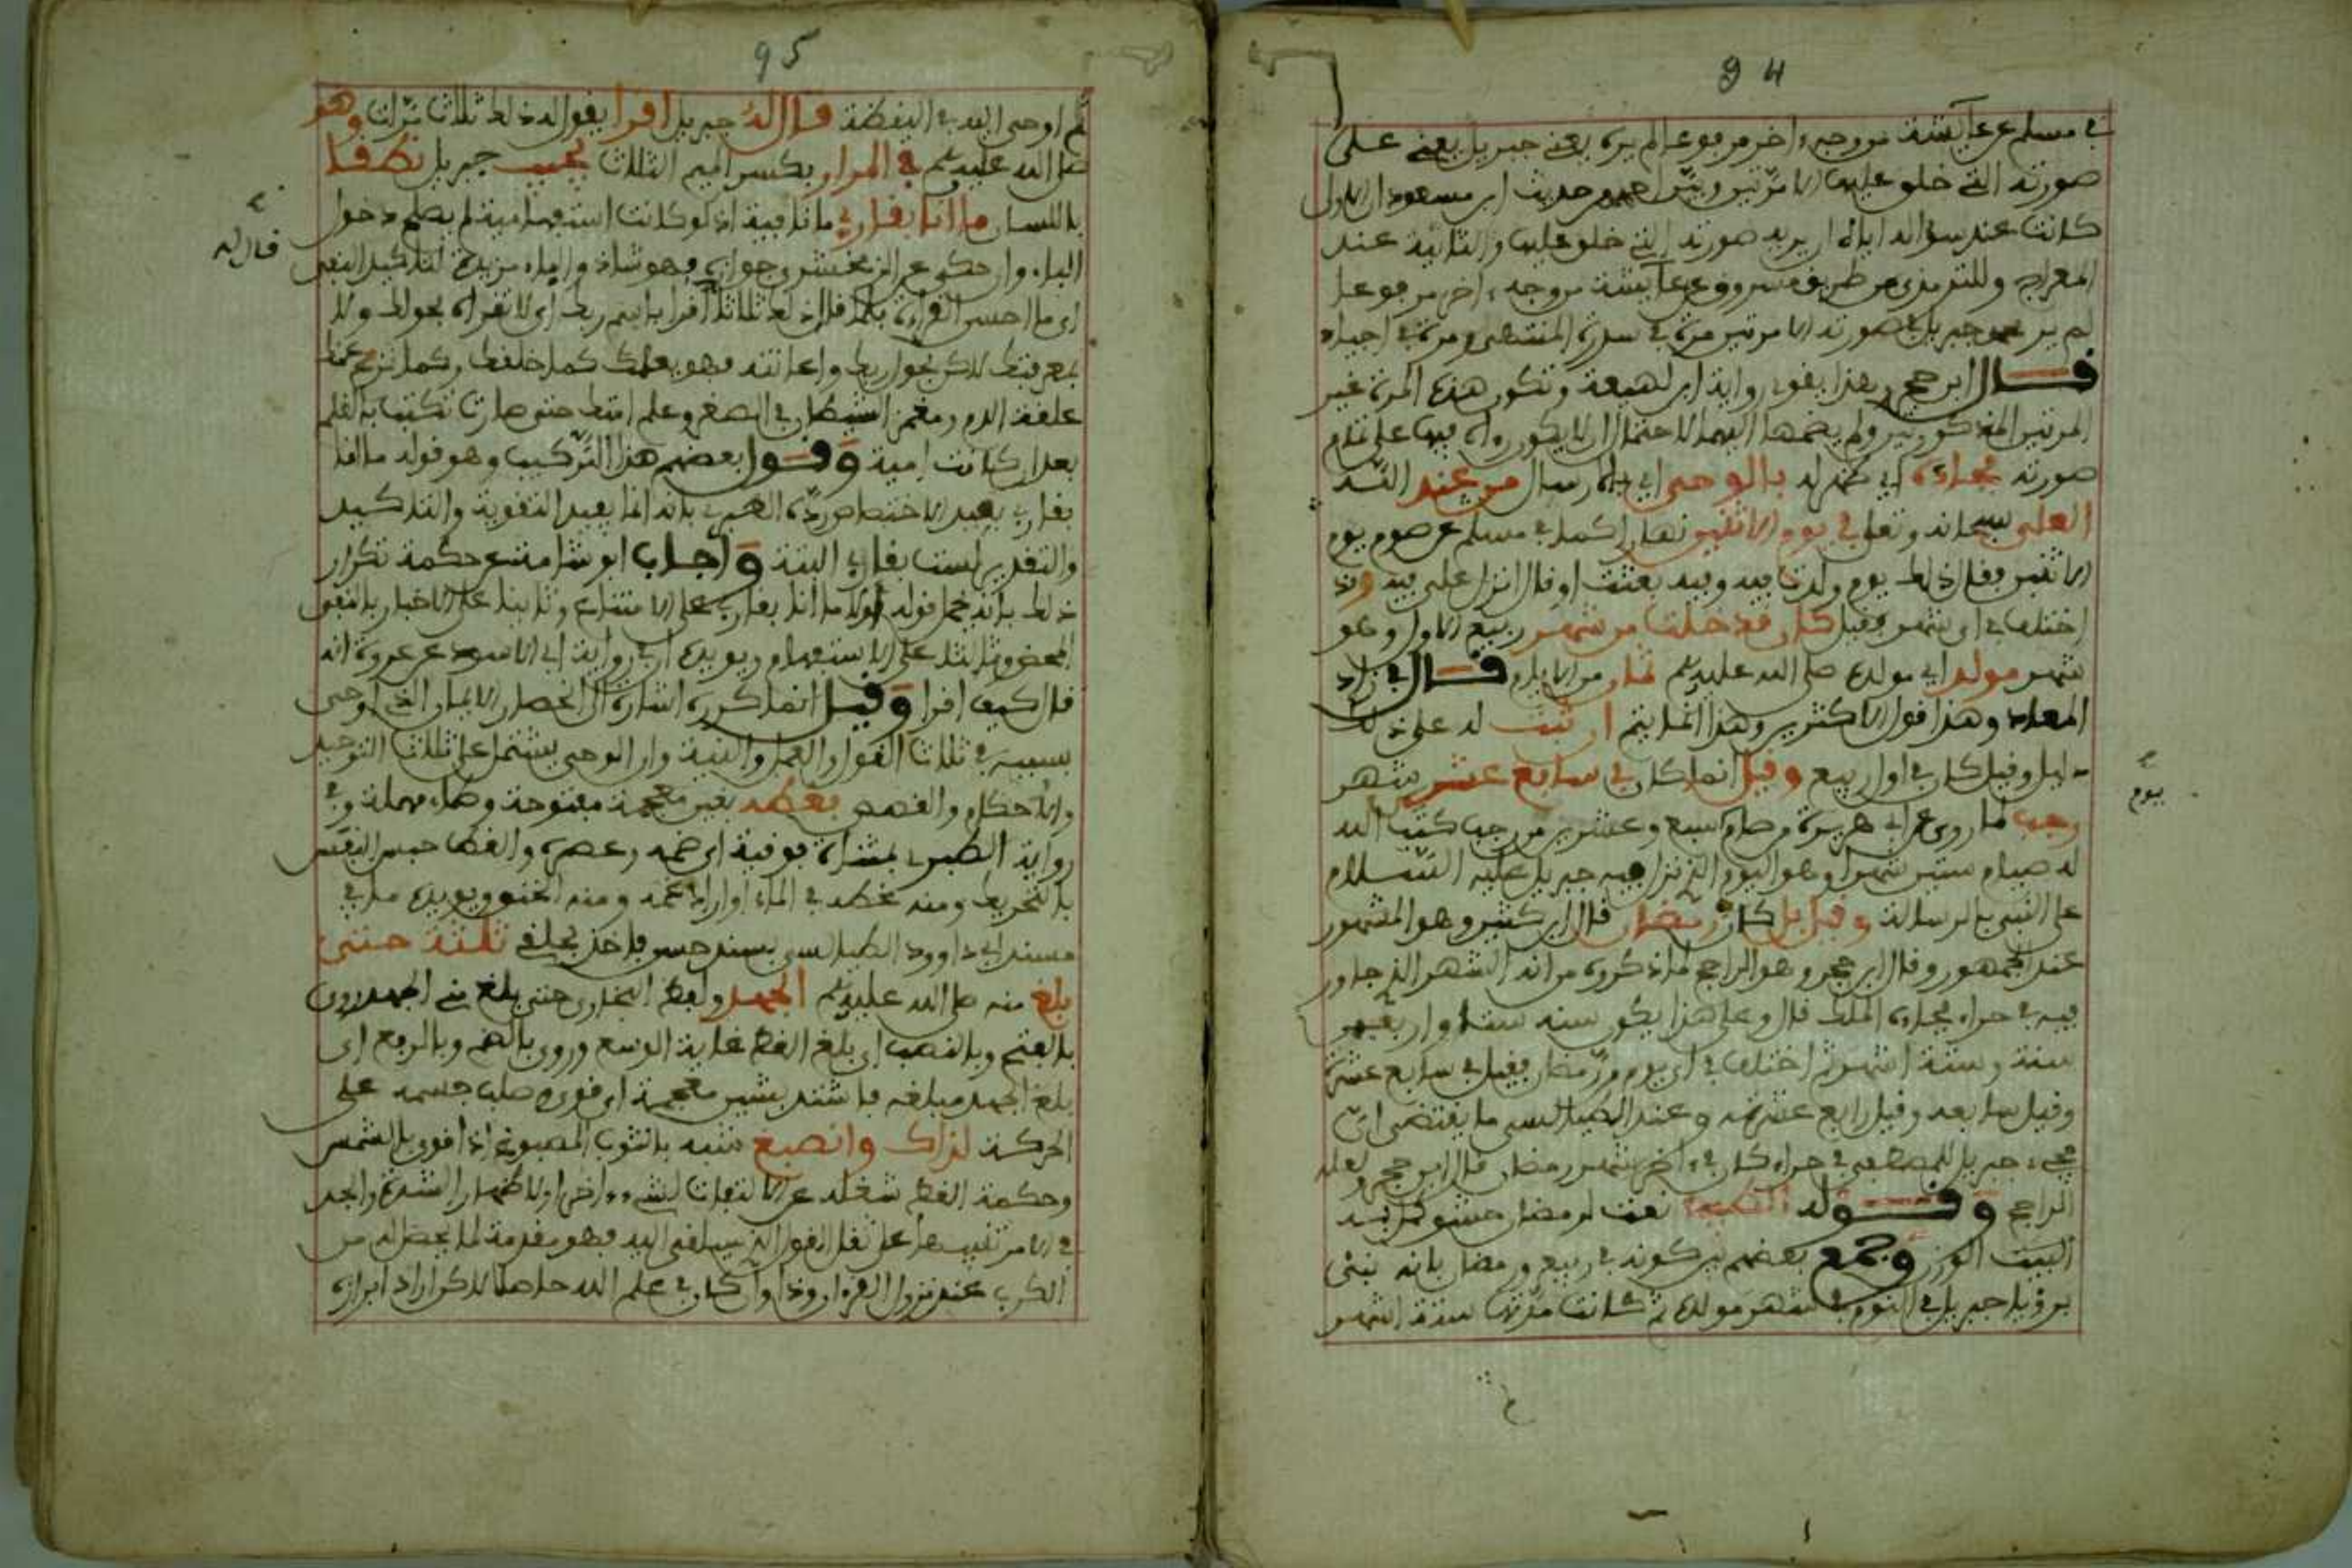 94
في مسلم عن عائشة من وجه اخر مرفوعا لم يره يعني جبريل يعني على
صورته التي خلق عليها الا مرتين وبين احمد في حديث ابن مسعود ان الاولى
كانت عند سؤاله اياه ان يريه صورته التي خلق عليها والثانية عند
المعراج وللترمذي من طريق مسروق عن عائشة من وجه اخر مرفوعا
لم ير محمد جبريل في صورته الا مرتين مرة في سدرة المنتهى ومرة في اجياد
قال ابن حجر وهذا يقوي رواية ابن لهيعة وتكون هذه المرة غير
المرتين المذكورتين ولم يضمها اليهما لاحتمال ان لا يكون راه فيها على تمام
صورته فجاءه اي محمد بالوحي اي بالارسال من عند الله
العلي سبحانه وتعالى في يوم الاثنين نهارا كما في مسلم عن صوم يوم
الاثنين فقال ذلك يوم ولدت فيه وفيه بعثت او قال انزل علي فيه وقد
اختلف في اي شهر فقيل كان قد خلت من شهر ربيع الاول وهو
شهر مولد اي مولده صلى الله عليه وسلم ثمان من الايام قال في زاد
المعاد وهذا قول الاكثرين وهذا انما يتم ان ثبت له على ذلك
دليل وقيل كان في اول ربيع وقيل انما كان في سابع عشر شهر
يوم
رجب لما روي عن ابي هريرة من صام سبع وعشرين من رجب كتب الله
له صيام ستين شهرا وهو اليوم الذي نزل فيه جبريل عليه السلام
على النبي بالرسالة وقيل بل كان رمضان قال ابن كثير وهو المشهور
عند الجمهور وقال ابن حجر وهو الراجح لما ذكروه من انه الشهر الذي جاور
فيه في حراء فجاءه الملك قال وعلى هذا يكون سنه سنة اربعين
سنة وستة اشهر ثم اختلف في اي يوم من رمضان فقيل في سابع عشرة
وقيل سابعه وقيل رابع عشريه وعند الطيالسي ما يقتضي ان
مجيء جبريل للمصطفى في حراء كان في اخر شهر رمضان قال ابن حجر ولعله
الراجح وقوله نعت لرمضان حشو كمل به
البيت الوزن وجمع بعضهم بين كونه في ربيع ورمضان بانه نبئ
برؤيا جبريل في النوم في شهر مولده ثم كانت مدتها ستة اشهر
95
ثم اوحي اليه في اليقظة قال له جبريل اقرا يقول له ذلك ثلاث مرات وهو
صلى الله عليه وسلم في المرار بكسر الميم الثلاث يجيب جبريل نطقا
باللسان ما انا بقارئ ما نافية اذ لو كانت استفهامية لم يصلح دخول
قال له
الباء وان حكي عن الاخفش جوازه فهو شاذ والباء مزيدة لتاكيد النفي
اي ما احسن القراءة فلما قال ذلك ثلاثا اقرا باسم ربك اي لا تقراه بحولك ولا
بمعرفتك لاكن بحول ربك واعانته فهو يعلمك كما خلقك وكما نزع عنك
علقة الدم ومغمز الشيطان في الصغر وعلم امتك حتى صارت تكتب بالقلم
بعد ان كانت امية وقول بعضهم هذا التركيب وهو قوله ما انا
بقارئ يفيد الاختصاص رده الطيبي بانه انما يفيد التقوية والتاكيد
والتقدير لست بقارئ البتة واجاب ابو شامة عن حكمة تكرار
ذلك بانه يحمل قوله اولا ما انا بقارئ على الامتناع وثانيا على الاخبار بالنفي
المحض وثالثا على الاستفهام ويويده ان في رواية ابي الاسود عن عروة انه
قال كيف اقرا وقيل انما كرره اشارة الى انحصار الايمان الذي اوحي
بسببه في ثلاث القول والعمل والنية وان الوحي يشتمل على ثلاث التوحيد
والاحكام والقصص بغطه بغين معجمة مفتوحة وطاء مهملة وفي
رواية الطبري بمثناة فوقية اي ضمه وعصره والغط حبس النفس
بالتحريك ومنه غطه في الماء او اراد غمه ومنه الخنق ويويده ما في
مسند ابي داوود الطيالسي بسند حسن فاخذ بحلقي ثلثة حتى
بلغ منه صلى الله عليه وسلم الجهد ولفظ البخاري حتى بلغ مني الجهد روي
بالفتح وبالنصب اي بلغ الغط غاية الوسع وروي بالضم وبالرفع اي
بلغ الجهد مبلغه فاشتد بشين معجمة اي قوي وصلب جسمه على
الحركة لذاك وانصبغ شبه بالثوب المصبوغ اذا قوي بالشمس
وحكمة الغط شغله عن الالتفات لشيء اخر او لاظهار الشدة والجد
في الامر تنبيها على ثقل القول الذي سيلقى اليه فهو مقدمة لما يحصل له من
الكرب عند نزول القرءان وذا وان كان في علم الله حاصلا لاكن اراد ابرازه